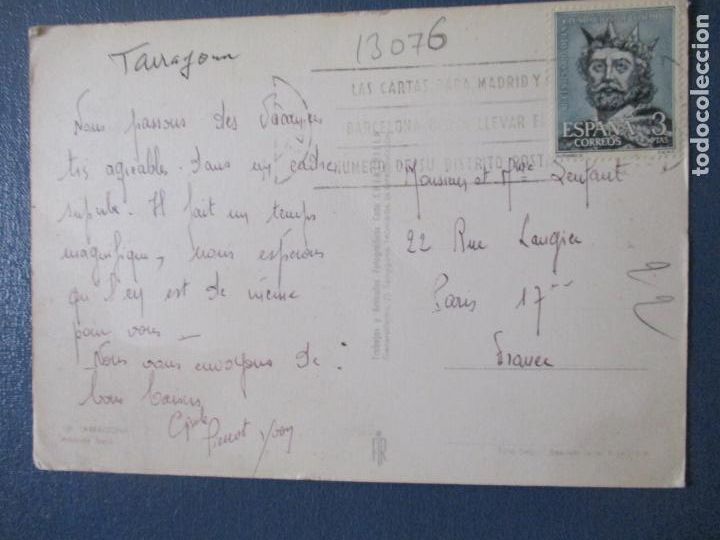 Tarragone
13076
LAS CARTAS PARA MADRID Y
BARCELONA LLEVAR
NUMERO DE SU DISTRITO POSTAL
ESPAÑA 3
CORREOS PTAS
Nous passons des Vacances
très agréables. Dans un cadre
superbe. Il fait un temps
magnifique, nous espérons
qu'il en est de même
pour vous —
Nous vous envoyons de
bons baisers
Pierrot Yvon
Monsieur et Mme Lenfant
22 Rue Laugier
Paris 17
France
22
todocoleccion